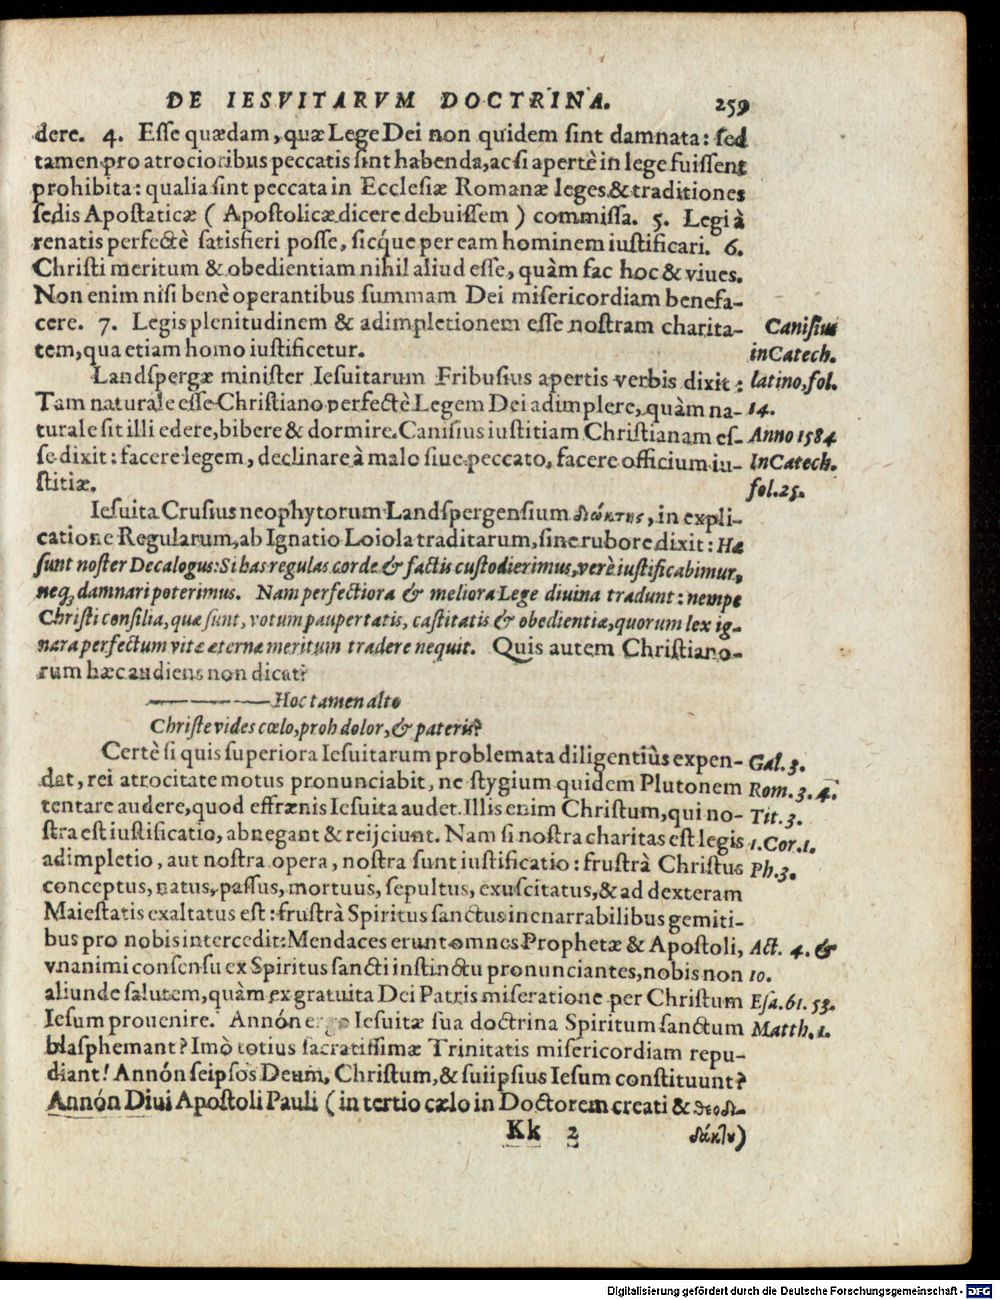 DE IESVITARVM DOCTRINA. 259
dere. 4. Esse quædam, quæ Lege Dei non quidem sint damnata: sed
tamen pro atrocioribus peccatis sint habenda, ac si apertè in lege fuissent
prohibita: qualia sint peccata in Ecclesiæ Romanæ leges & traditiones
sedis Apostaticæ ( Apostolicæ dicere debuissem ) commissa. 5. Legi à
renatis perfectè satisfieri posse, sicq́ue per eam hominem iustificari. 6.
Christi meritum & obedientiam nihil aliud esse, quàm fac hoc & viues.
Non enim nisi benè operantibus summam Dei misericordiam benefa-
cere. 7. Legis plenitudinem & adimpletionem esse nostram charita-
Canisius
tem, qua etiam homo iustificetur.
in Catech.
Landspergæ minister Iesuitarum Fribusius apertis verbis dixit:
latino, fol.
Tam naturale esse Christiano perfectè Legem Dei adimplere, quàm na-
14.
turale sit illi edere, bibere & dormire. Canisius iustitiam Christianam es-
Anno 1584
se dixit: facere legem, declinare à malo siue peccato, facere officium iu-
In Catech.
stitiæ.
fol. 25.
Iesuita Crusius neophytorum Landspergensium διώκτης, in expli-
catione Regularum, ab Ignatio Loiola traditarum, sine rubore dixit: Hæ
sunt noster Decalogus: Si has regulas corde & factis custodierimus, verè iustificabimur,
neq; damnari poterimus. Nam perfectiora & meliora Lege diuina tradunt: nempe
Christi consilia, quæ sunt, votum paupertatis, castitatis & obedientiæ, quorum lex ig-
nara perfectum vitæ æternæ meritum tradere nequit. Quis autem Christiano-
rum hæc audiens non dicat?
———— Hoc tamen alto
Christe vides cœlo, proh dolor, & pateris?
Certè si quis superiora Iesuitarum problemata diligentiùs expen-
Gal. 3.
dat, rei atrocitate motus pronunciabit, ne stygium quidem Plutonem
Rom. 3. 4.
tentare audere, quod effrænis Iesuita audet. Illis enim Christum, qui no-
Tit. 3.
stra est iustificatio, abnegant & reijciunt. Nam si nostra charitas est legis
1. Cor. 1.
adimpletio, aut nostra opera, nostra sunt iustificatio: frustrà Christus
Ph. 3.
conceptus, natus, passus, mortuus, sepultus, exuscitatus, & ad dexteram
Maiestatis exaltatus est: frustrà Spiritus sanctus inenarrabilibus gemiti-
bus pro nobis intercedit: Mendaces erunt omnes Prophetæ & Apostoli,
Act. 4. &
vnanimi consensu ex Spiritus sancti instinctu pronunciantes, nobis non
10.
aliunde salutem, quàm ex gratuita Dei Patris miseratione per Christum
Esa. 61. 53.
Iesum prouenire. Annón ergo Iesuitæ sua doctrina Spiritum sanctum
Matth. 1.
blasphemant? Imò totius sacratissimæ Trinitatis misericordiam repu-
diant! Annón seipsos Deum, Christum, & sui ipsius Iesum constituunt?
Annón Diui Apostoli Pauli ( in tertio cælo in Doctorem creati & θεοδι-
Kk 2 δάκτυ)
Digitalisierung gefördert durch die Deutsche Forschungsgemeinschaft - DFG